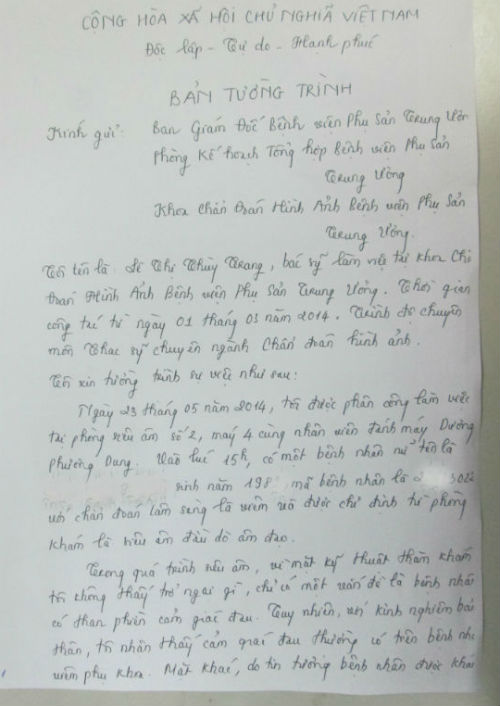 CỘNG HÒA XÃ HỘI CHỦ NGHĨA VIỆT NAM
Độc lập - Tự do - Hạnh phúc
BẢN TƯỜNG TRÌNH
Kính gửi: Ban Giám Đốc Bệnh viện Phụ Sản Trung Ương
Phòng Kế hoạch Tổng hợp Bệnh viện Phụ Sản
Trung Ương
Khoa Chẩn đoán Hình Ảnh Bệnh viện Phụ Sản
Trung Ương.
Tôi tên là: Lê Thị Thùy Trang, bác sỹ làm việc tại khoa Chẩ
đoán Hình Ảnh Bệnh viện Phụ Sản Trung Ương. Thời gian
công tác từ ngày 01 tháng 03 năm 2014. Trình độ chuyên
môn Thạc sỹ chuyên ngành Chẩn đoán hình ảnh.
Tôi xin tường trình sự việc như sau:
Ngày 23 tháng 05 năm 2014, tôi được phân công làm việc
tại phòng siêu âm số 2, máy 4 cùng nhân viên đánh máy Dương
Phương Dung. Vào lúc 15h, có một bệnh nhân nữ tên là
sinh năm 198 , mã bệnh nhân là 302
với chẩn đoán lâm sàng là viêm và được chỉ định từ phòng
khám là siêu âm đầu dò âm đạo.
Trong quá trình siêu âm, về mặt kỹ thuật thăm khám
tôi không thấy trở ngại gì, chỉ có một vấn đề là bệnh nhân
có than phiền cảm giác đau. Tuy nhiên, với kinh nghiệm bản
thân, tôi nhận thấy cảm giác đau thường có trên bệnh nhâ
viêm phụ khoa. Mặt khác, do tin tưởng bệnh nhân được khá